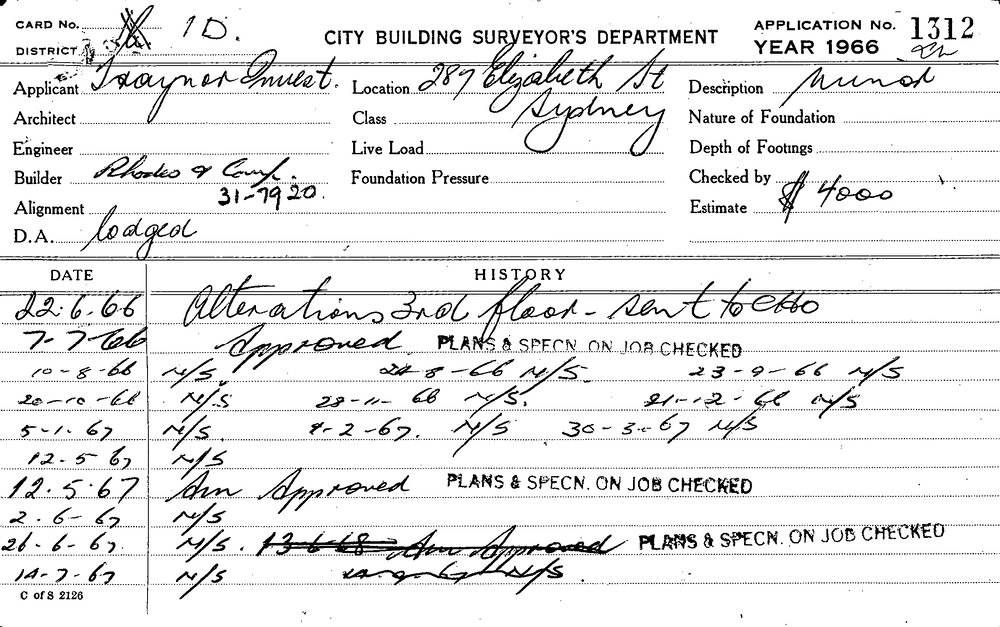 CARD No. 1D. CITY BUILDING SURVEYOR'S DEPARTMENT APPLICATION No. 1312
DISTRICT YEAR 1966
Applicant Traynor Invest. Location 287 Elizabeth St Description
Architect Class Sydney Nature of Foundation
Engineer Live Load Depth of Footings
Builder Rhodes & Comp. Foundation Pressure Checked by
Alignment 31-7920. Estimate $ 4000
D.A. lodged
DATE HISTORY
22.6.66 Alterations 3rd floor - sent to
7-7-66 Approved PLANS & SPECN. ON JOB CHECKED
10-8-66 N/S. 24-8-66 N/S. 23-9-66 N/S
20-10-66 N/S 28-11-66 N/S. 21-12-66 N/S
5-1-67 N/S. 9-2-67. N/S 30-3-67 N/S
12-5-67 N/S
12.5.67 Am Approved PLANS & SPECN. ON JOB CHECKED
2-6-67 N/S
26-6-67 N/S. 13-6-68 Am Approved PLANS & SPECN. ON JOB CHECKED
14-7-67 N/S N/S.
C of S 2126